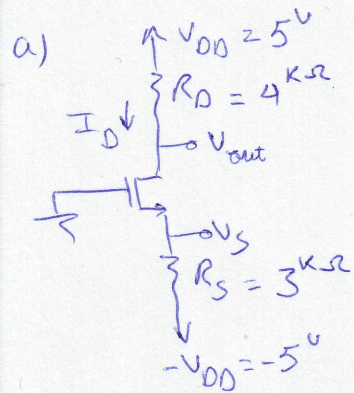 a)
V_DD = 5^V
R_D = 4^KΩ
I_D
V_out
V_S
R_S = 3^KΩ
-V_DD = -5^V